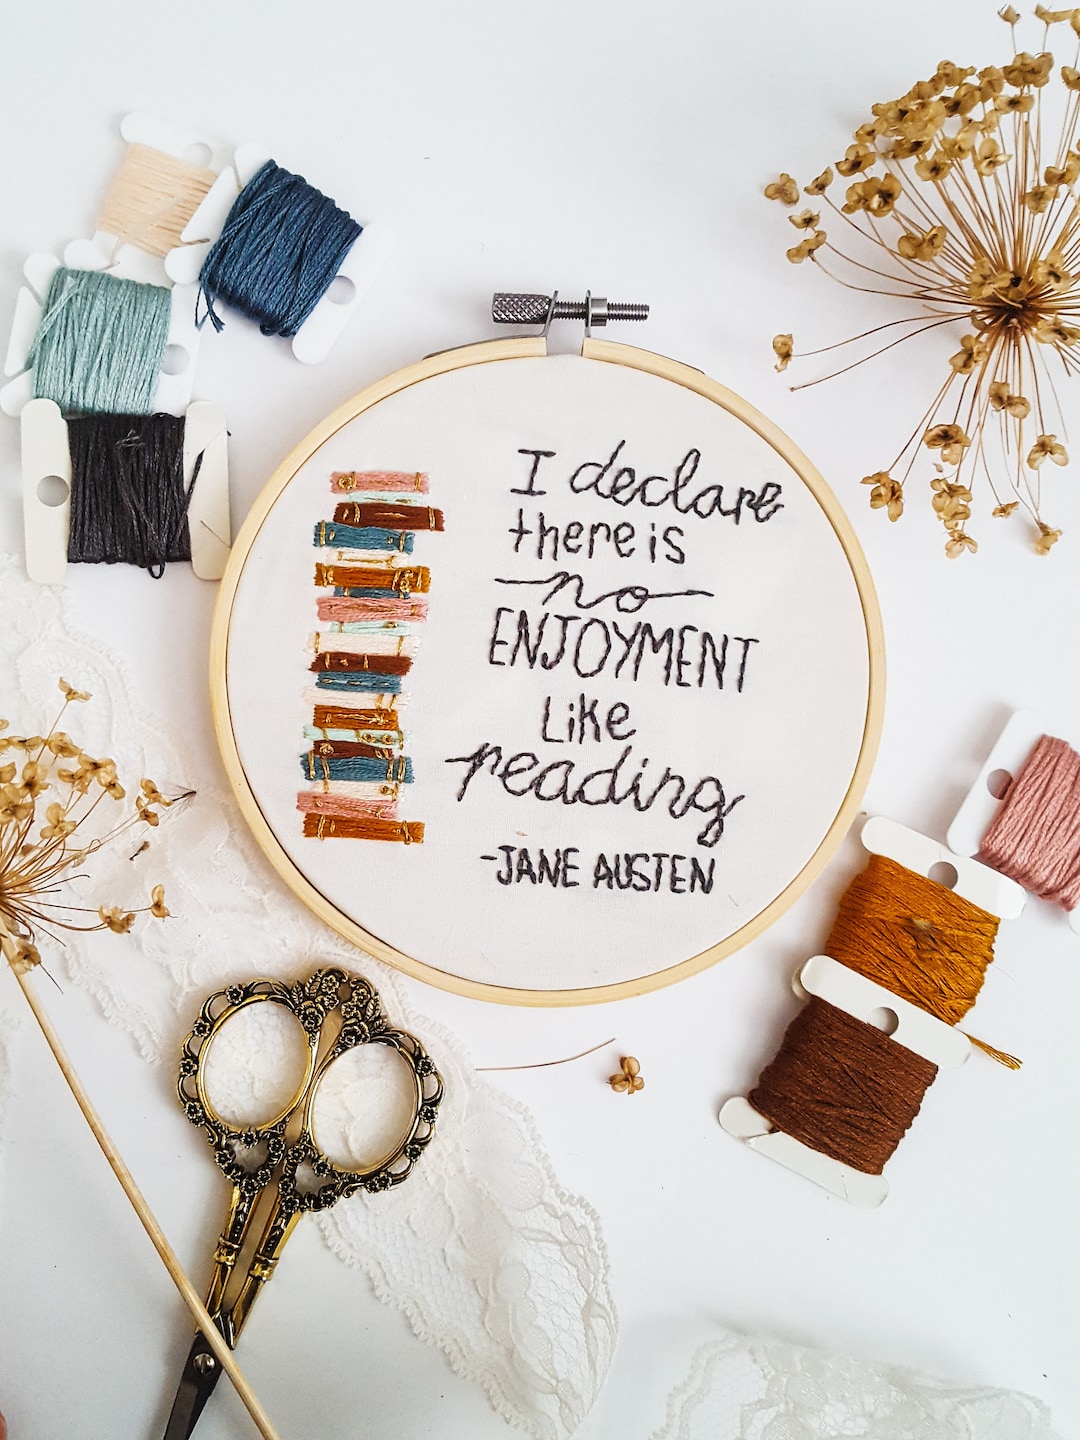 I declare
there is
no
ENJOYMENT
Like
reading
-JANE AUSTEN